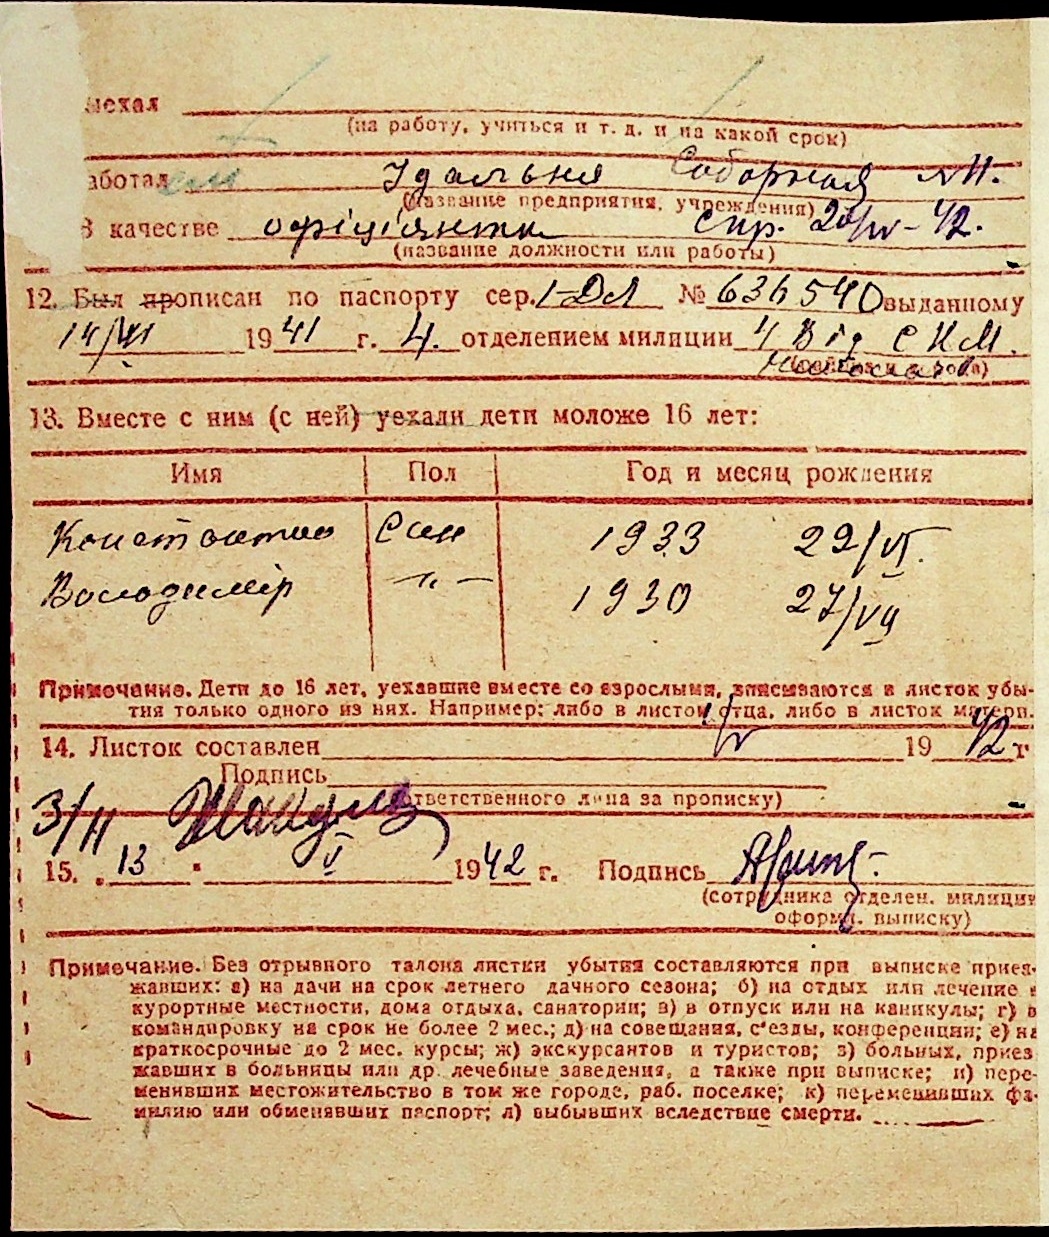 ыехал
(на работу, учиться и т. д. и на какой срок)
аботал Їдальня Соборная № 11.
(название предприятия, учреждения)
В качестве офіціянтка спр. 20/IV-42.
(название должности или работы)
12. Был прописан по паспорту сер. I-ДЛ № 636540 выданному
1941 г. 4. отделением милиции 4 Від С К М.
13. Вместе с ним (с ней) уехали дети моложе 16 лет:
Имя Пол Год и месяц рождения
Константин Син 1933 29/VI.
Володимір -"- 1930 27/VIII
Примечание. Дети до 16 лет, уехавшие вместе со взрослыми, вписываются в листок убы-
тия только одного из них. Например: либо в листок отца, либо в листок матери.
14. Листок составлен 1/V 1942 г
Подпись
ответственного лица за прописку)
3/II
15. „13 " V 1942 г. Подпись
(сотрудника отделен. милиции
оформл. выписку)
Примечание. Без отрывного талона листки убытия составляются при выписке приез-
жавших: а) на дачи на срок летнего дачного сезона; б) на отдых или лечение в
курортные местности, дома отдыха, санатории; в) в отпуск или на каникулы; г) в
командировку на срок не более 2 мес.; д) на совещания, с'езды, конференции; е) на
краткосрочные до 2 мес. курсы; ж) экскурсантов и туристов; з) больных, приез
жавших в больницы или др. лечебные заведения, а также при выписке; и) пере-
менивших местожительство в том же городе, раб. поселке; к) переменивших фа-
милию или обменявших паспорт; л) выбывших вследствие смерти.